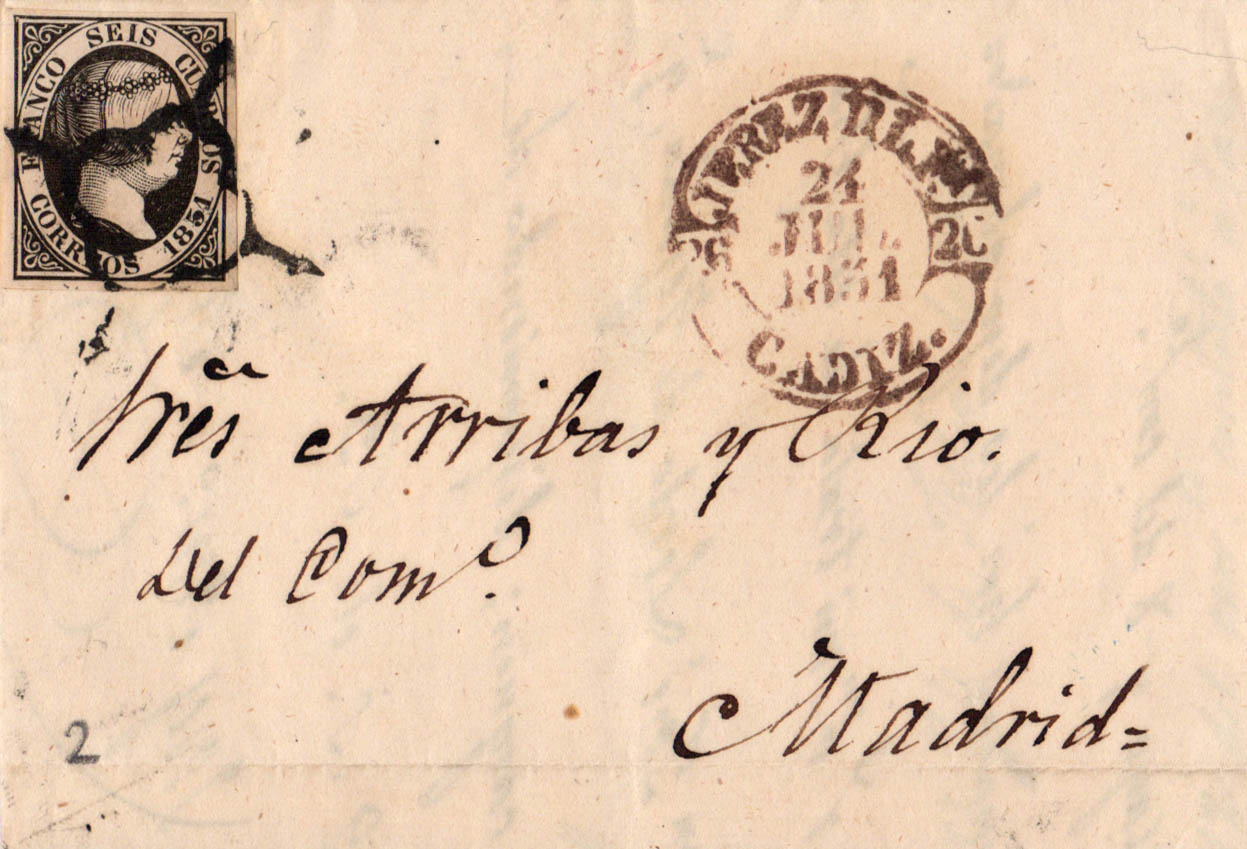 FRANCO SEIS CUARTOS
CORREOS 1851
JEREZ DE LA F.
24
JUL.
1851
20 20
CADIZ.
Sres Arribas y Rio.
Del Como.
Madrid=
2